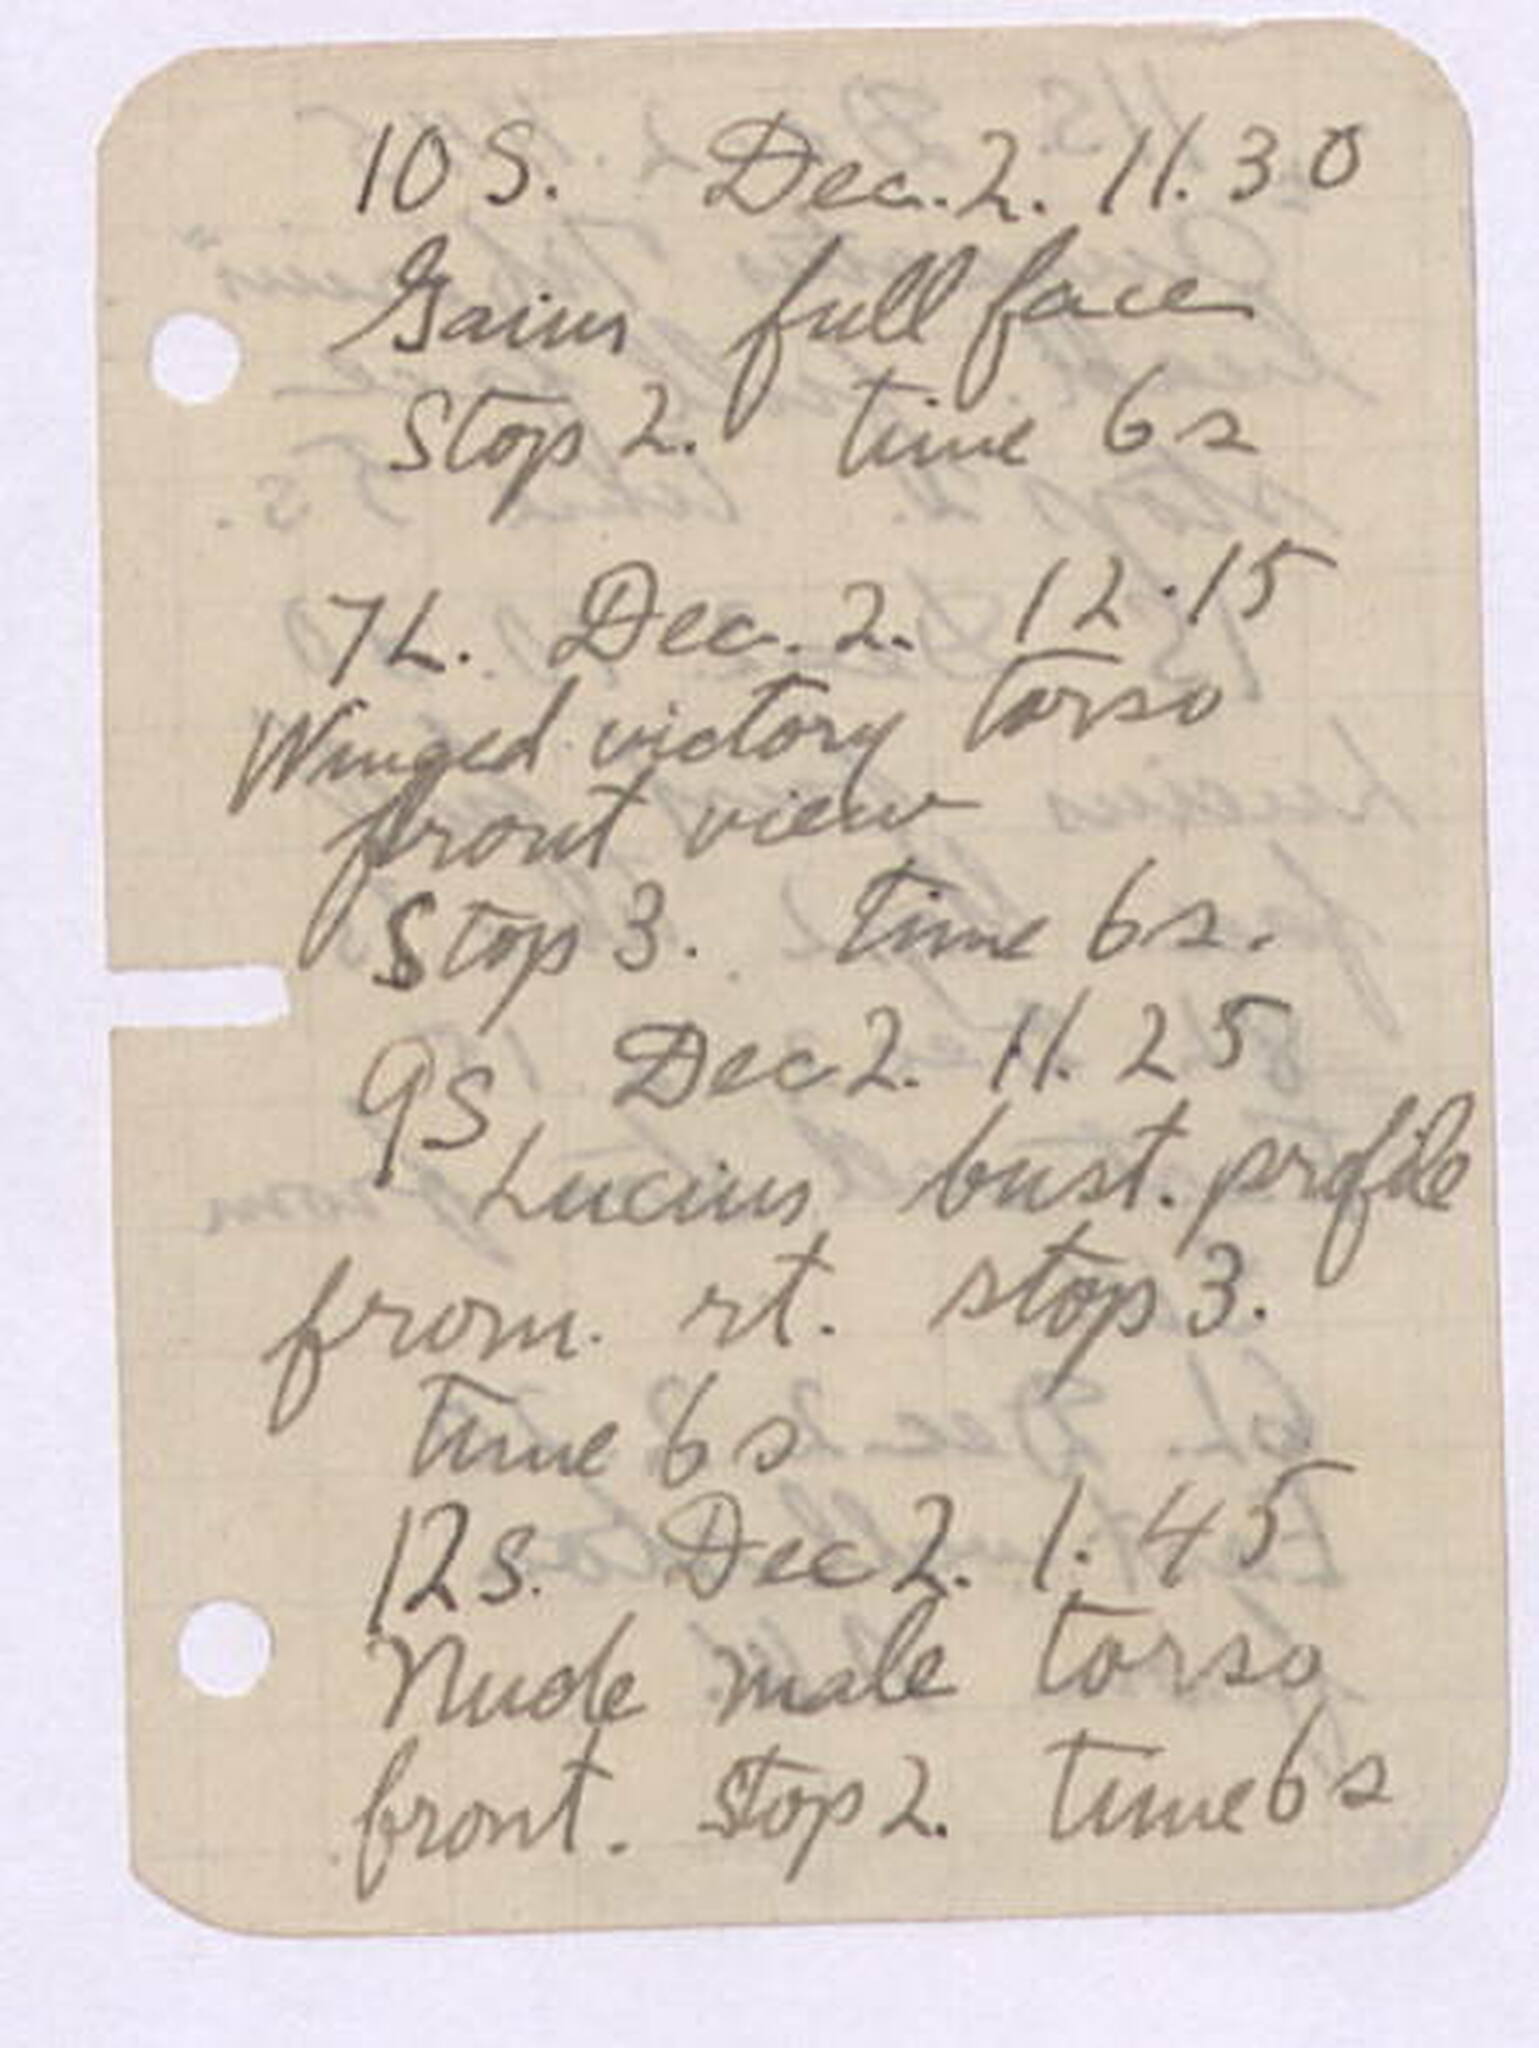 10 S. Dec. 2. 11.30
Gaius full face
Stop 2. time 6 s
7L. Dec. 2. 12.15
Winged victory torso
front view
Stop 3. time 6 s.
9S. Dec 2. 11.25
Lucius bust. profile
from. rt. stop 3.
time 6 s
12S. Dec 2. 1.45
Nude male torso
front. Stop 2. time 6 s